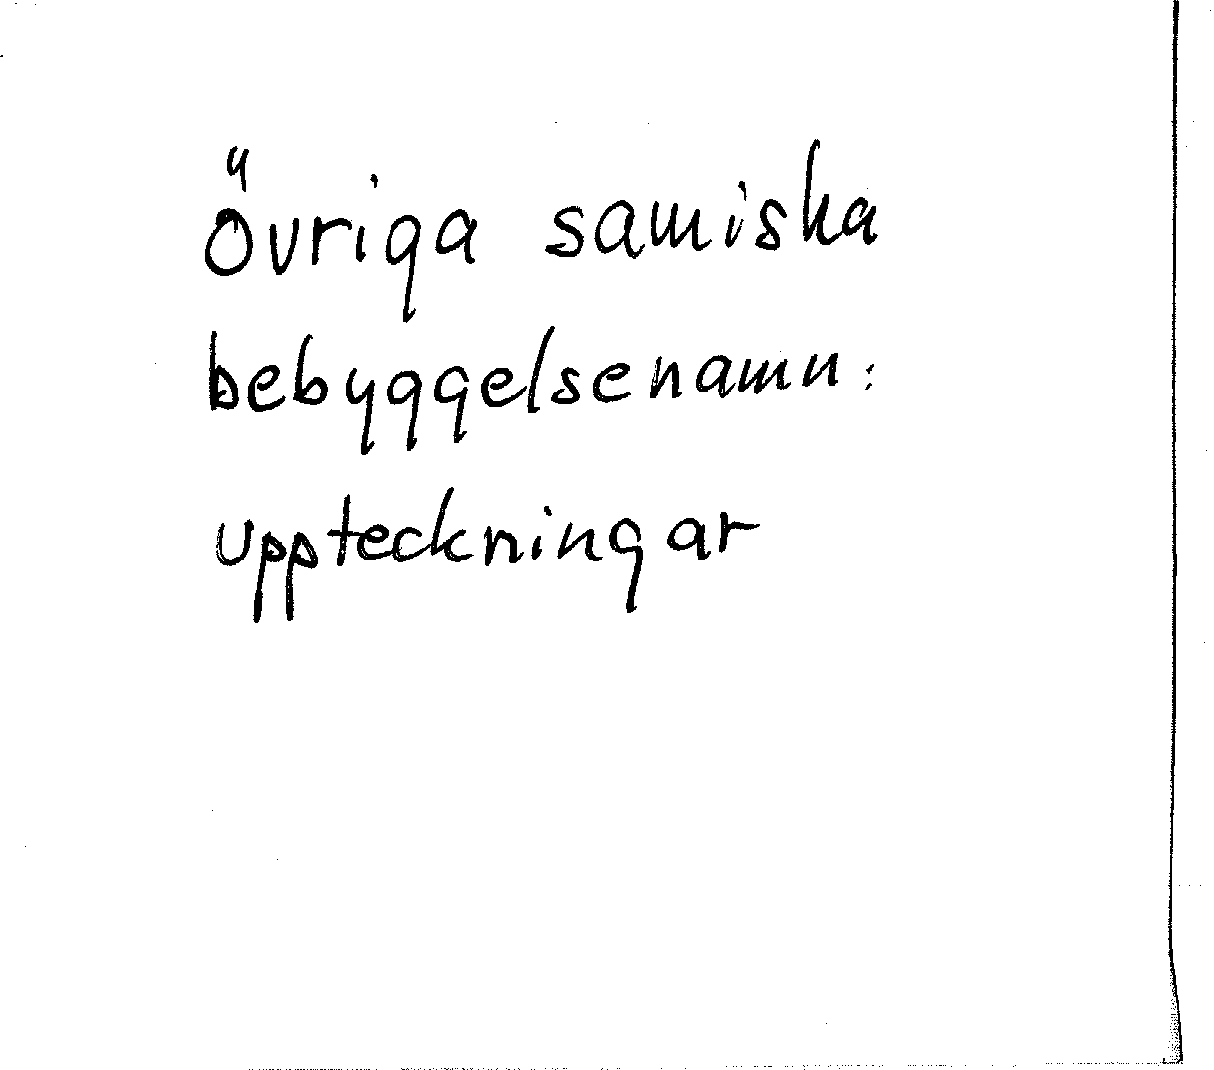 Övriga samiska
bebyggelsenamn:
uppteckningar